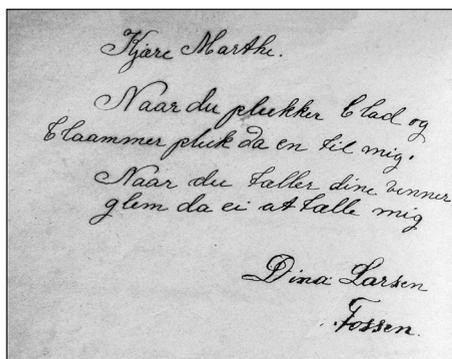 Kjære Marthe.
Naar du plukker Blad og
Blaammer pluk da en til mig.
Naar du tæller dine venner
glem da ei at tælle mig
Dina Larsen
Fossen.